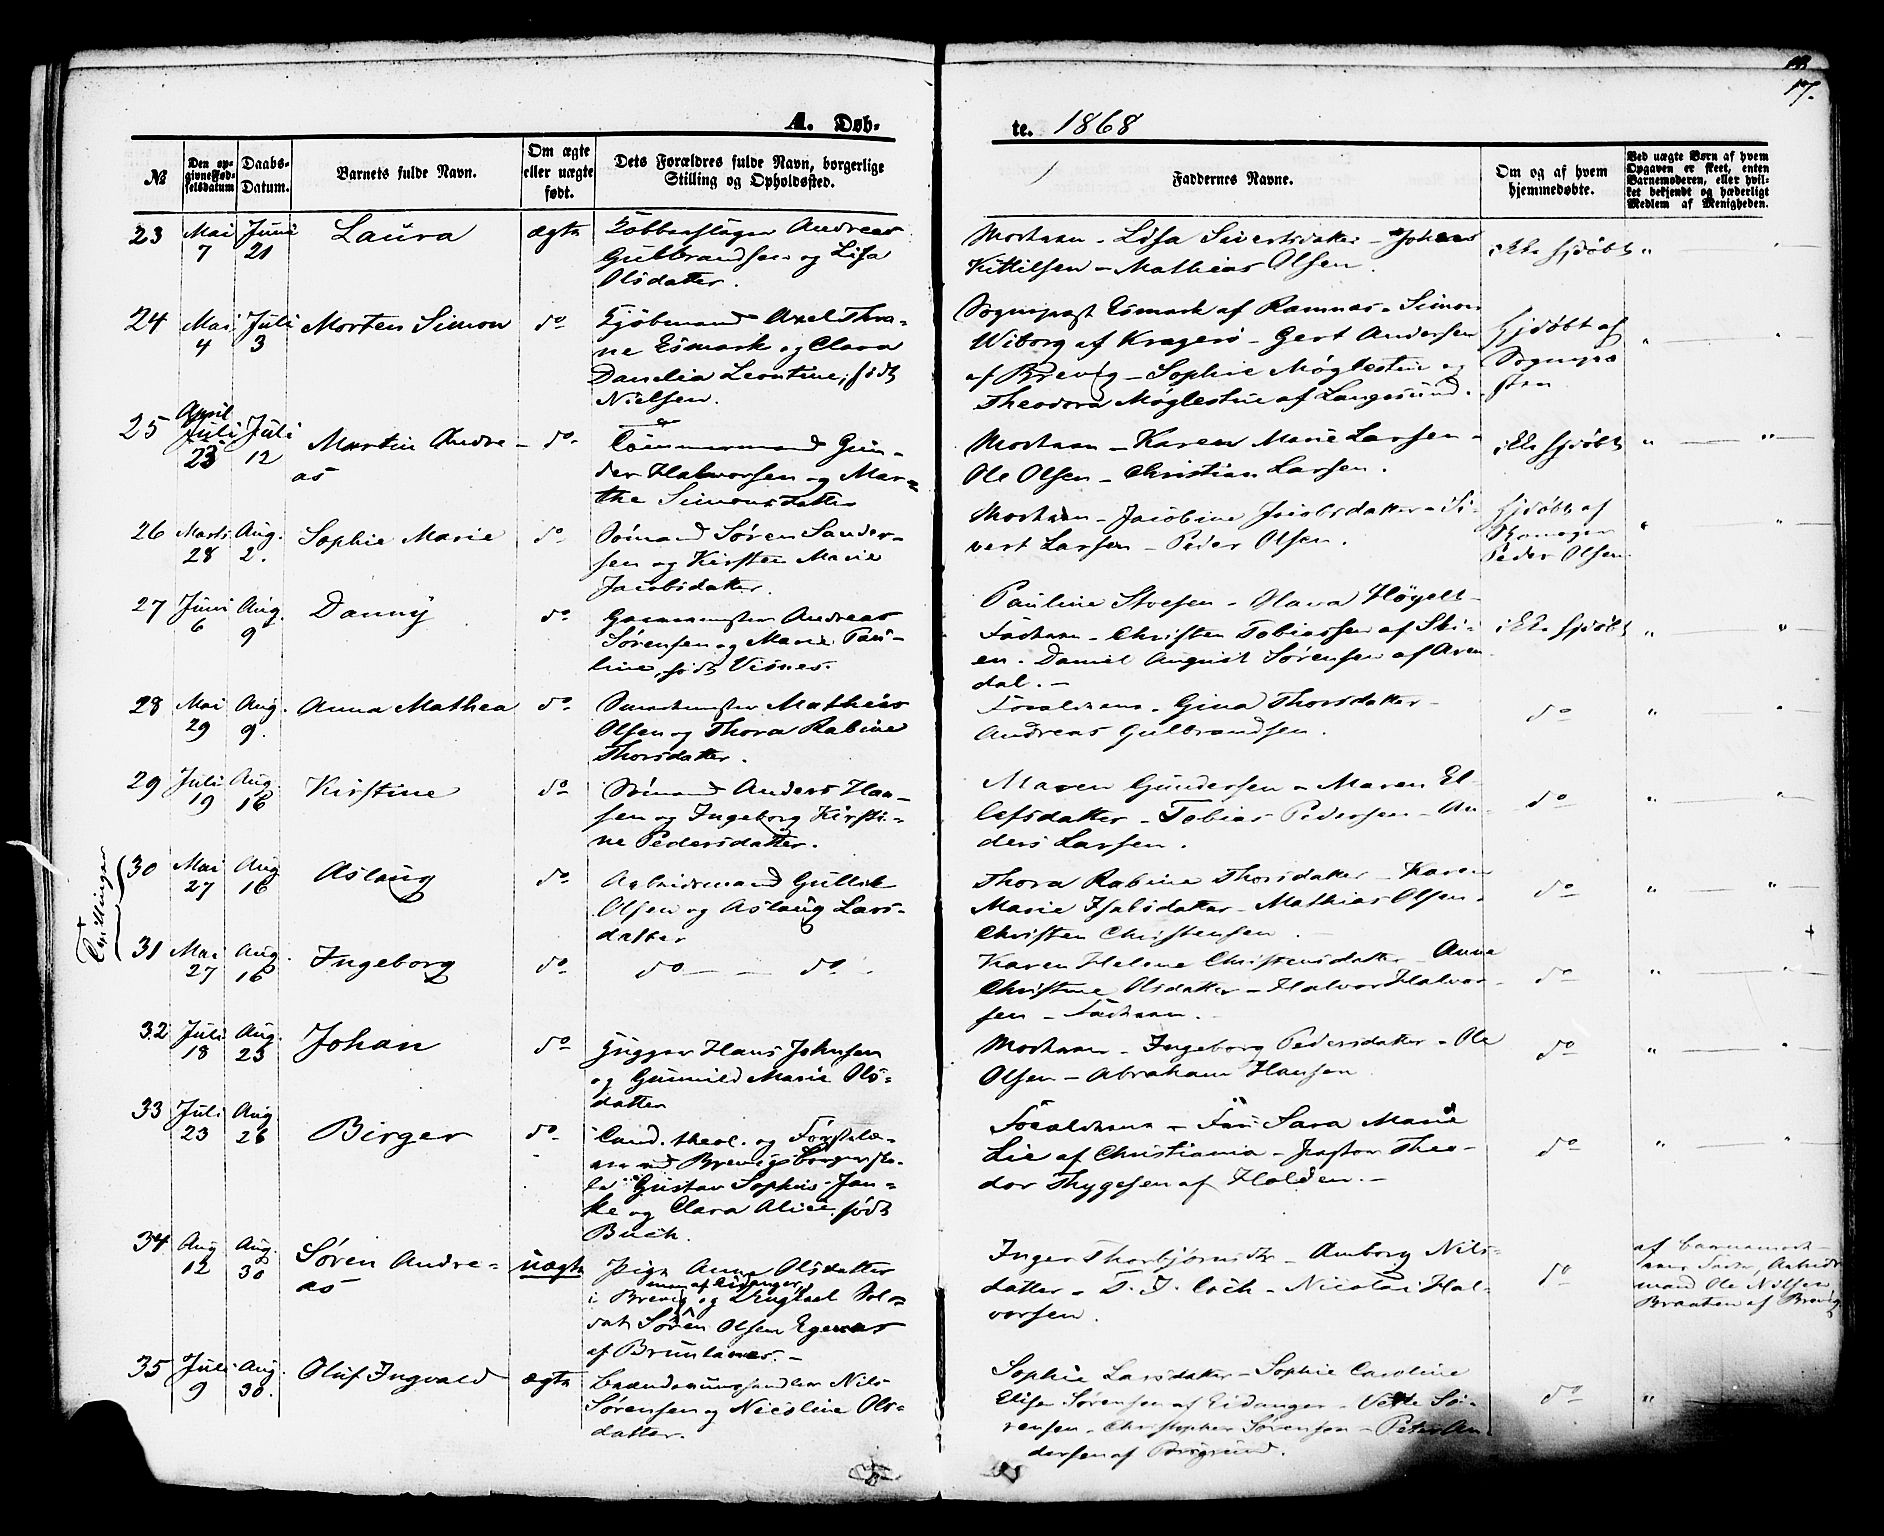 17.
A. Døb-
te. 1868
№
Den op-
givne Fød-
selsdatum
Daabs-
Datum.
Barnets fulde Navn.
Om ægte
eller uægte
født.
Dets Forældres fulde Navn, borgerlige
Stilling og Opholdssted.
Faddernes Navne.
Om og af hvem
hjemmedøbte.
Ved uægte Børn af hvem
Opgaven er skeet, enten
Barnemoderen, eller hvil-
ket bekjendt og hæderligt
Medlem af Menigheden.
23 Mai 7 Juni 21 Laura ægte
Kobberslager Andreas
Gulbrandsen og Lisa
Olsdatter.
Moderen - Lisa Sivertsdatter - Johans
Kittilsen - Mathias Olsen.
ikke hjdøbt " "
24 Mai 4 Juli 3 Morten Simon do
Kjøbmand Axel Thra-
ne Esmark og Clara
Danelia Leontine, født
Nielsen.
Sognepræst Esmark af Ramnæs - Simon
Wiborg af Kragerø - Gert Andersen
af Brevig - Sophie Møglestue og
Theodora Møglestue af Langesund.
hjdøbt af
Sognepræ
sten " "
25 April
Juli 23 Juli 12 Martin Andre-
as do
Tømmermand Gun-
der Halvorsen og Mar-
the Simonsdatter
Moderen - Karen Marie Larsen -
Ole Olsen - Christian Larsen.
ikke hjdøbt " "
26 Marts 28 Aug. 2. Sophie Marie do
Sømand Søren Sander-
sen og Kirsten Marie
Jacobsdatter.
Moderen - Jacobine Jacobsdatter - Si-
vert Larsen - Peder Olsen.
hjdøbt af
Peder Olsen " "
27 Juni 6 Aug. 9 Danny do
Andreas
Sørensen og Marie Pau-
line, født Visnes.
Pauline Stoesen - Hava Høyelt-
Faderen - Christen Tobiassen af Ski-
en. Daniel August Sørensen af Aren
dal. -
ikke hjdøbt " "
28 Mai 29 Aug. 9. Anna Mathea do
Mathias
Olsen og Thora Rabine
Thorsdatter.
Forældrene. Gina Thorsdatter -
Andreas Gulbrandsen.
do " "
29 Juli 19 Aug. 16 Kirstine do
Sømand Anders Han-
sen og Ingeborg Kirsti-
ne Pedersdatter.
Maren Gundersen - Maren El-
lefsdatter - Tobias Pedersen - An-
ders Larsen.
do " "
Tvillinger
30 Mai 27 Aug 16 Aslaug do
Arbeidsmand Gullik
Olsen og Aslaug Lars-
datter
Thora Rabine Thorsdatter - Karen
Marie Isaksdatter - Mathias Olsen -
Christen Christensen. -
do " "
31 Mai 27 Aug. 16 Ingeborg do
do - - do
Karen Helene Christensdatter - Anne
Christine Olsdatter - Halvor Halvor-
sen - Faderen. -
do " "
32 Juli 18 Aug. 23 Johan do
Hans Johnsen
og Gunnild Marie Ols-
datter
Moderen - Ingeborg Pedersdatter - Ole
Olsen - Abraham Hansen
do " "
33 Juli 23 Aug. 26 Birger do
Cand. theol. og Førstelæ-
rer ved Brevigs Borgersko-
le Gustav Sophus Jan-
ke og Clara Alice, født
Buch.
Forældrene - Frü Sara Marie
Lie af Christiania - Pastor Theo-
dor Thygesen af Holden. -
do " "
34 Aug 12 Aug. 30 Søren Andre-
as uægte
Pige Anne Olsdatter
af Eidanger
i Brevig og Sol-
dat Søren Olsen Egenæs
af Brunlanes. -
Inger Thorbjørnsdtr - Amborg Nils-
datter - T. J. Coch - Nicolai Hal-
vorsen.
do
af Barnemode-
rens Fader, Arbeids
mand Ole Nilsen
Braaten af Brevig
35 Juli 9 Aug. 30. Oluf Ingvald ægte
Brændeviinshandler Nils
Sørensen og Nicoline Ols-
datter.
Sophie Larsdatter - Sophie Caroline
Elise Sørensen af Eidanger - Sø-
rensen - Christopher Sørensen - Peter An
dersen af Borgesund.
do "